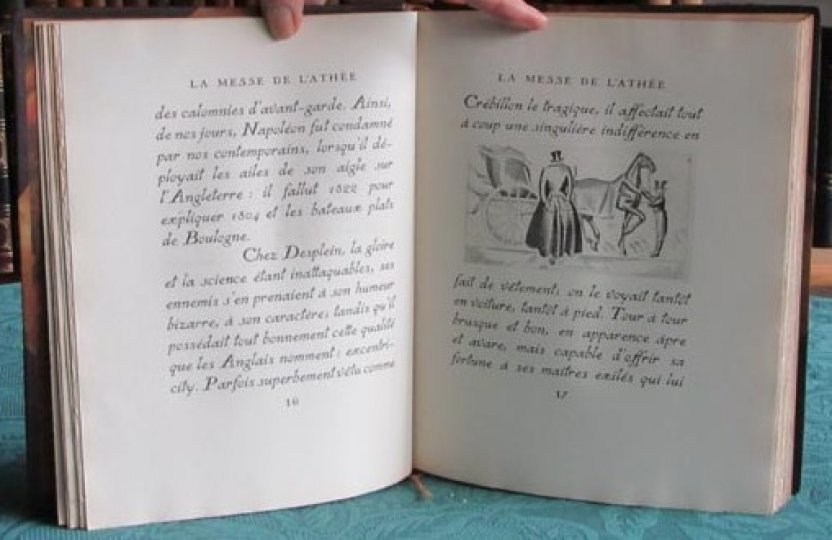 LA MESSE DE L'ATHÉE
des calomnies d'avant-garde. Ainsi,
de nos jours, Napoléon fut condamné
par nos contemporains, lorsqu'il dé-
ployait les ailes de son aigle sur
l'Angleterre : il fallut 1822 pour
expliquer 1804 et les bateaux plats
de Boulogne.
Chez Desplein, la gloire
et la science étant inattaquables, ses
ennemis s'en prenaient à son humeur
bizarre, à son caractère; tandis qu'il
possédait tout bonnement cette qualité
que les Anglais nomment : excentri-
city. Parfois superbement vêtu comme
16
LA MESSE DE L'ATHÉE
Crébillon le tragique, il affectait tout
à coup une singulière indifférence en
fait de vêtement; on le voyait tantôt
en voiture, tantôt à pied. Tour à tour
brusque et bon, en apparence âpre
et avare, mais capable d'offrir sa
fortune à ses maîtres exilés qui lui
17